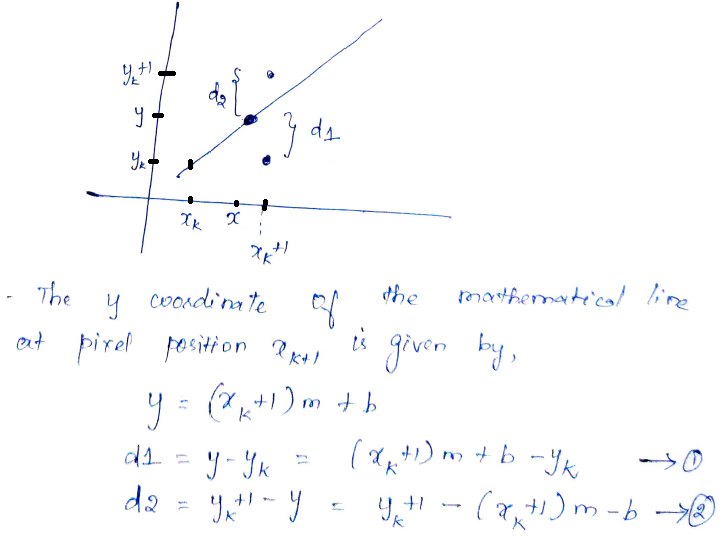 yₖ+1
d2
y
d1
yₖ
xₖ x
xₖ+1
- The y coordinate of the mathematical line
at pixel position xₖ₊₁ is given by,
y = (xₖ+1) m + b
d1 = y - yₖ = (xₖ+1) m + b - yₖ → ①
d2 = yₖ+1 - y = yₖ+1 - (xₖ+1) m - b → ②